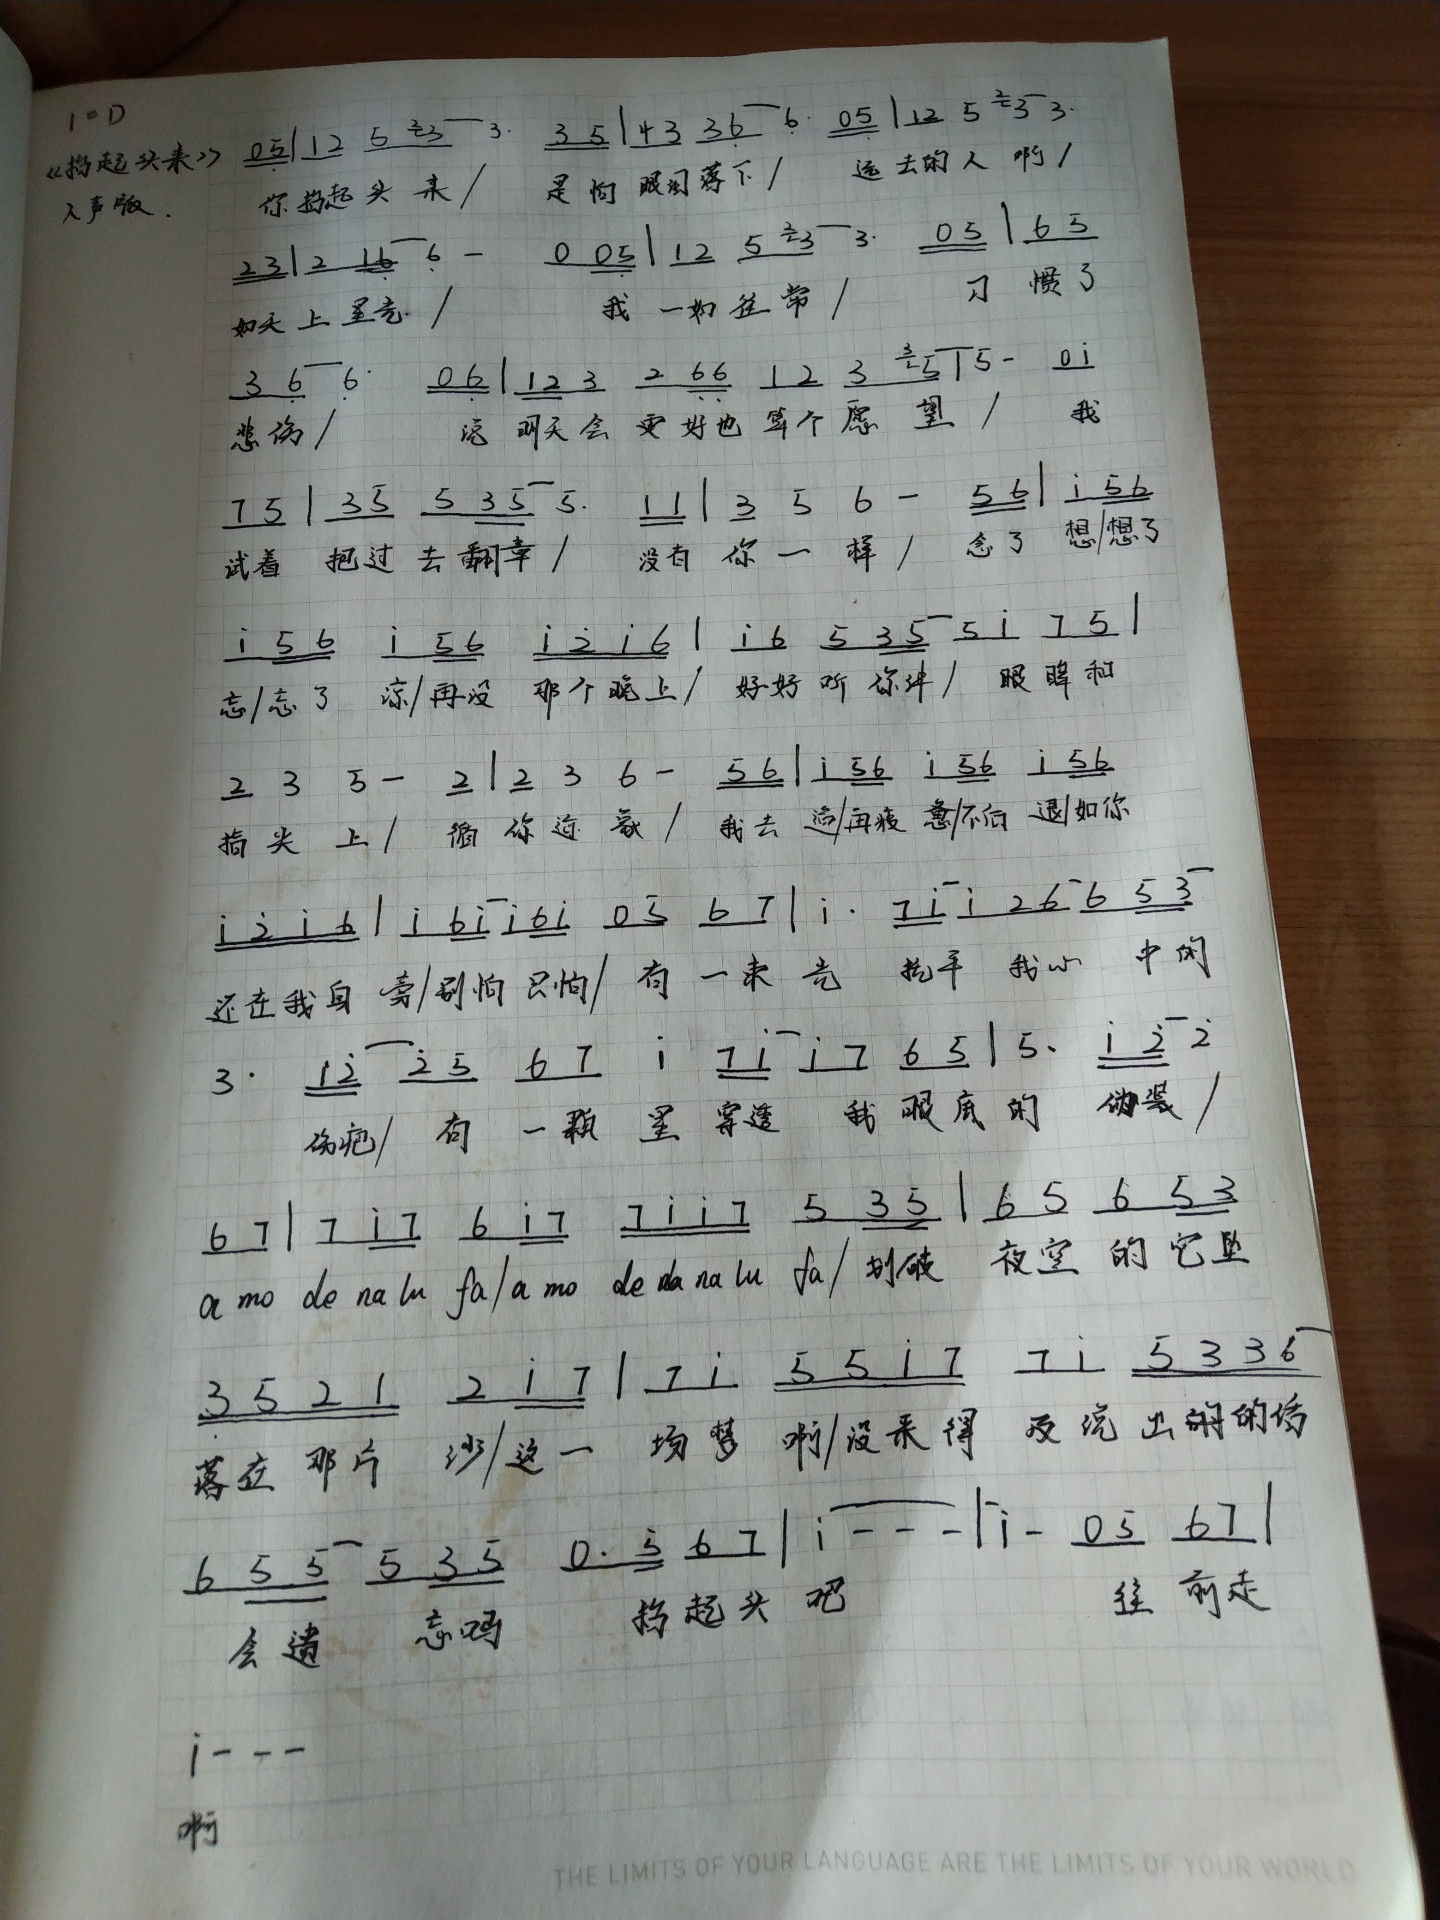 1=D
《抬起头来》 05|12 5 3 3· 35|43 36 6· 05|12 5 3 3·
人声版. 你抬起头来/ 是怕眼泪落下/ 远去的人啊/
23|2 16 6 - 0 05|12 5 3 3· 05|65
如天上星光/ 我一如往常/ 习惯了
3 6 6· 06|12 3 2 66 12 3 5|5 - 0i
悲伤/ 说明天会更好也算个愿望/ 我
75|35 5 35 5· 11|3 5 6 - 56|i 56
试着把过去翻章/ 没有你一样/ 念了想/想了
i 56 i 56 i2i6|i6 5 35 5i 75|
忘/忘了凉/再没那个晚上/ 好好听你讲/ 眼眸和
2 3 5 - 2|2 3 6 - 56|i 56 i 56 i 56
指尖上/ 循你迹象/ 我去追/再疲惫/不后退/如你
i2i6|i 6i i6i 05 67|i· 7i i26 6 53
还在我身旁/别怕只怕/ 有一束光 抚平我心中的
3· 12 25 67 i 7i i7 65|5· i2 2
伤疤/ 有一颗星穿透我眼底的伪装/
67|7 i7 6 i7 7ii7 5 35|65 6 53
a mo de na lu fa/a mo de na na lu fa/划破夜空的它坠
3521 2 i7|7i 55i7 7i 5336
落在那片沙/这一场梦啊/没来得及说出的的话
6 55 5 35 0·5 67|i - - -|i - 05 67|
会遗忘吗 抬起头吧 往前走
i - - -
啊
THE LIMITS OF YOUR LANGUAGE ARE THE LIMITS OF YOUR WORLD